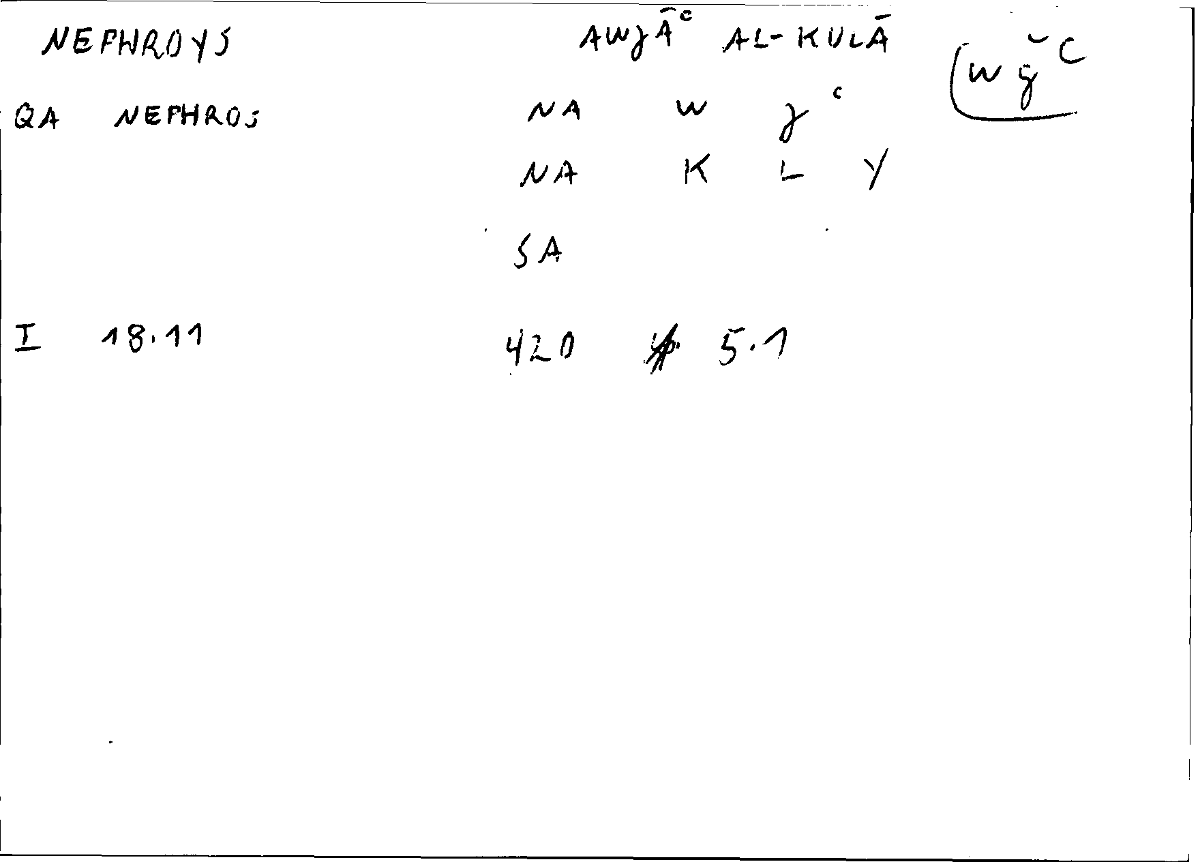 NEPHROYS AWJĀᶜ AL-KULĀ w ǧ ᶜ
QA NEPHROS NA W J ᶜ
NA K L Y
SA
I 18.11 420 5.1